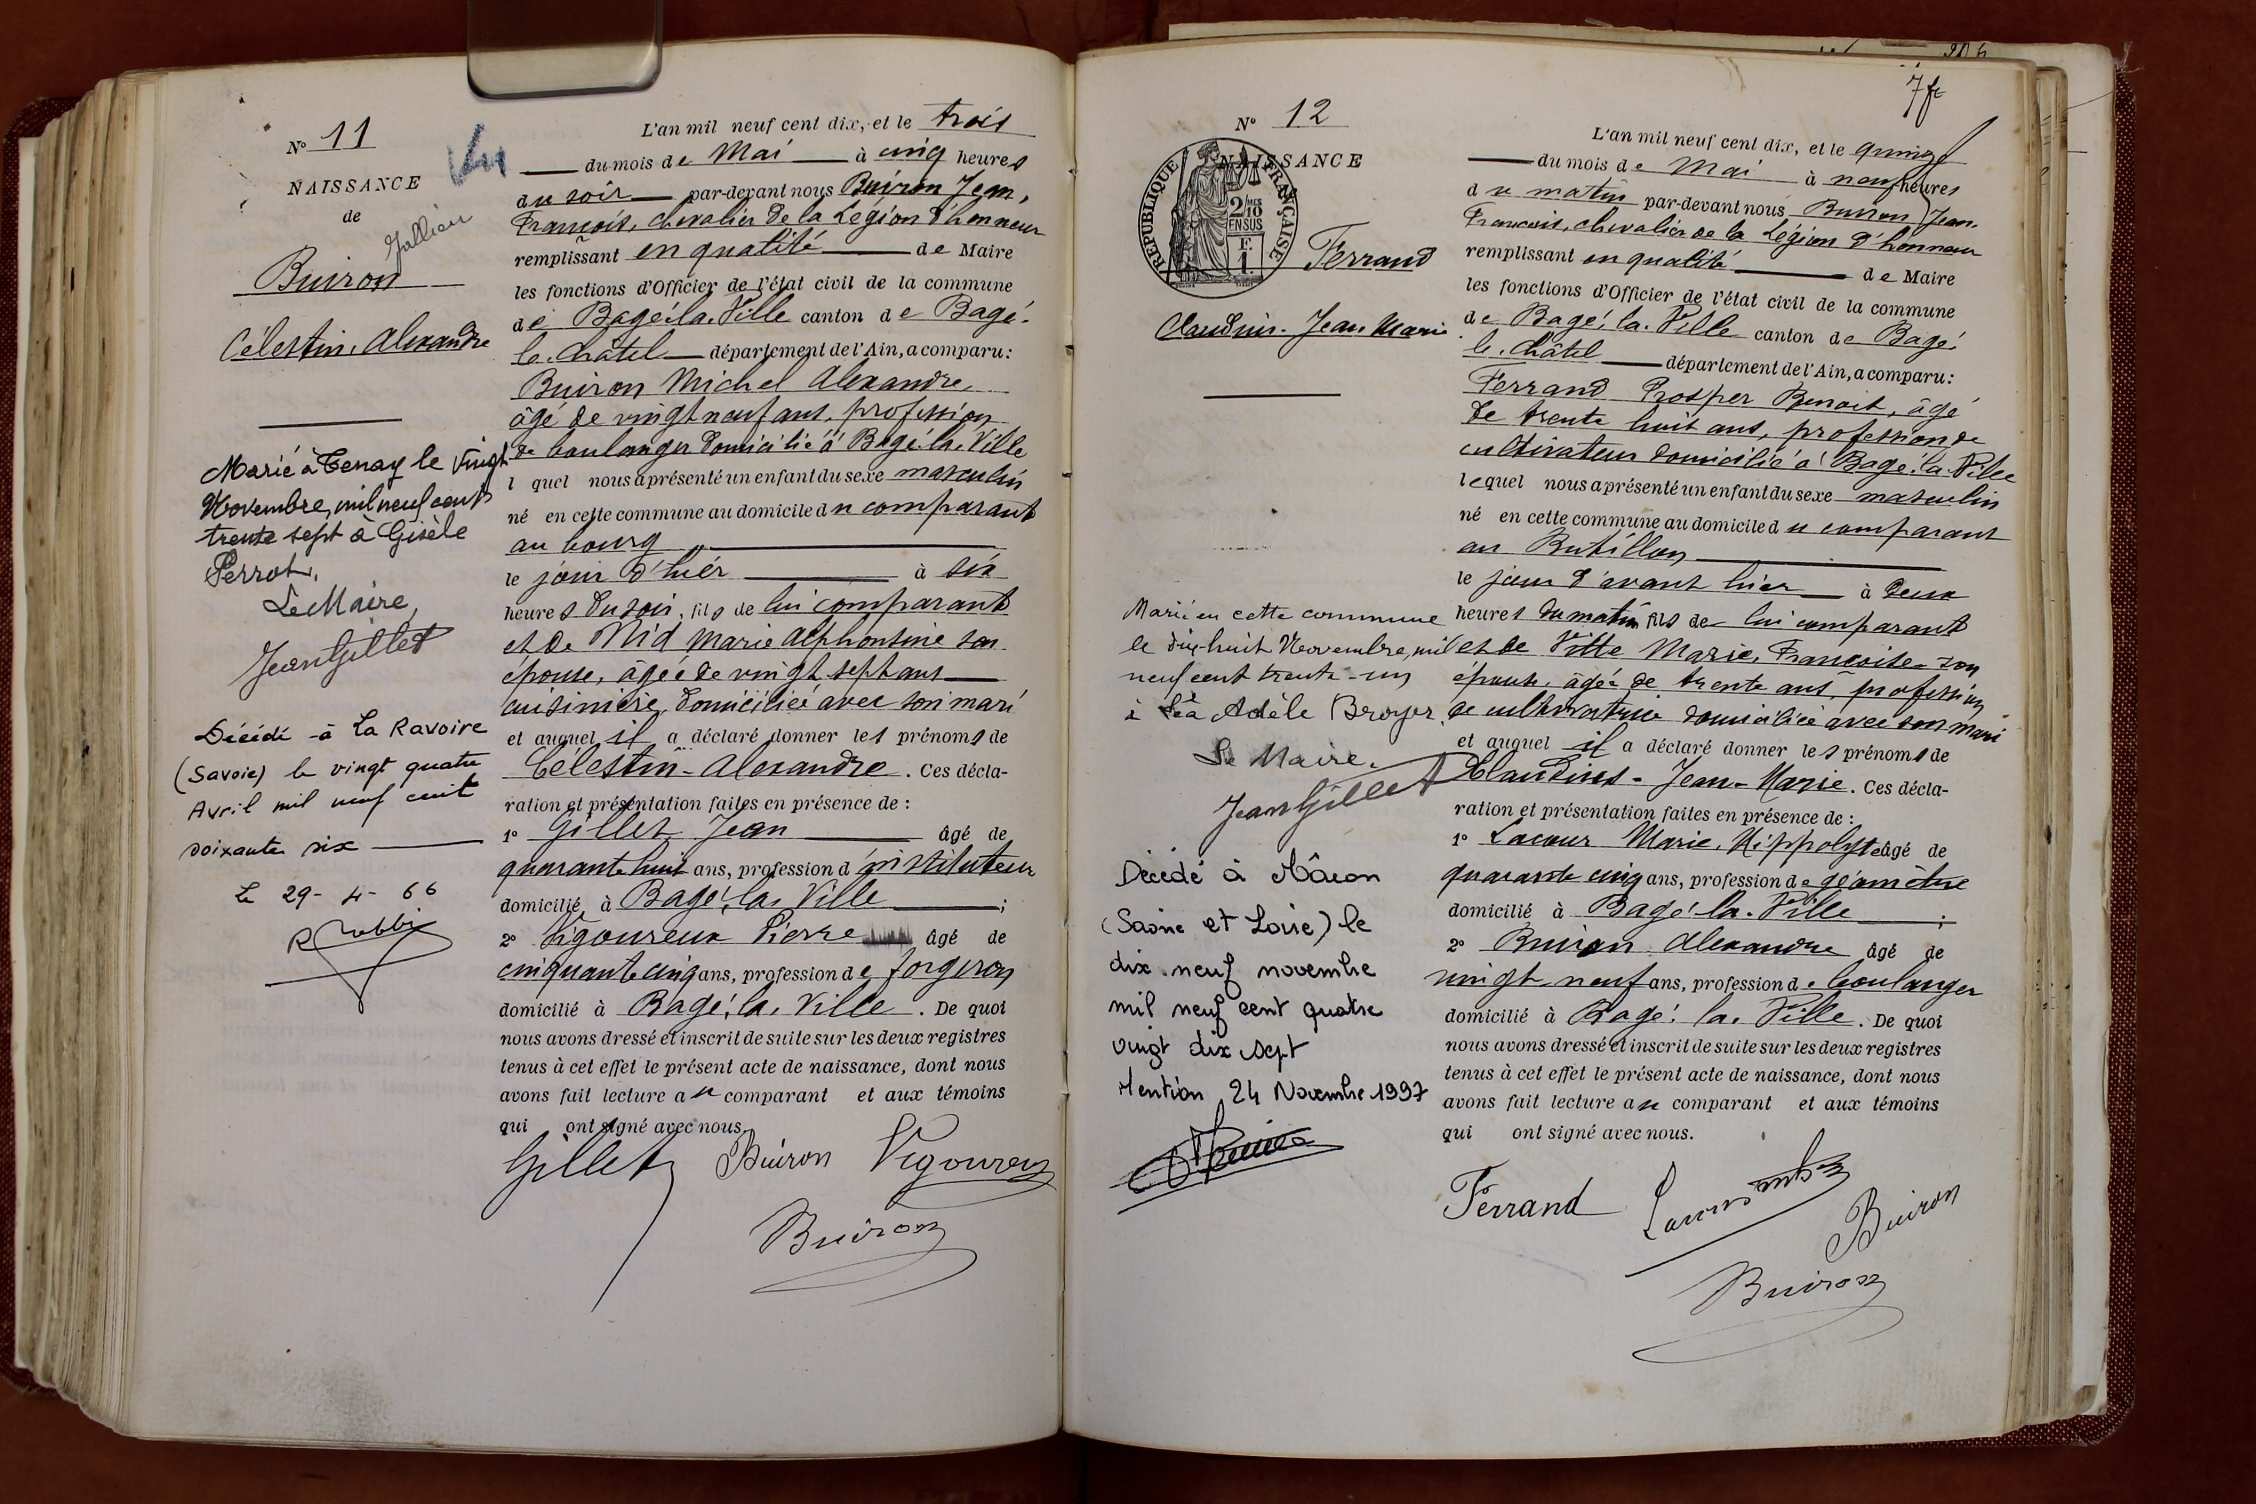 N° 11
NAISSANCE
de
Buiron
Célestin, Alexandre
Marié à Tenay le Vingt
Novembre, mil neuf cent
trente sept à Gisèle
Perrot.
Le Maire,
Jean Gillet
Décédé à La Ravoire
(Savoie) le vingt quatre
Avril mil neuf cent
soixante six
Le 29-4-66
L'an mil neuf cent dix, et le trois
du mois de Mai à cinq heures
du soir par-devant nous Buiron Jean,
François, chevalier de la Légion d'honneur
remplissant en qualité de Maire
les fonctions d'Officier de l'état civil de la commune
de Bagé-la-Ville canton de Bagé-
le-Châtel département de l'Ain, a comparu:
Buiron Michel Alexandre,
âgé de vingt neuf ans, profession
de boulanger domicilié à Bagé-la-Ville
l quel nous a présenté un enfant du sexe masculin
né en cette commune au domicile du comparant
au bourg
le jour d'hier à six
heures du soir, fils de lui comparant
et de Nid Marie Alphonsine son
épouse, âgée de vingt sept ans
cuisinière, domiciliée avec son mari
et auquel il a déclaré donner les prénoms de
Célestin-Alexandre. Ces décla-
ration et présentation faites en présence de :
1° Gillet Jean âgé de
quarante huit ans, profession d'instituteur
domicilié à Bagé-la-Ville ;
2° Vigoureux Pierre âgé de
cinquante cinq ans, profession de forgeron
domicilié à Bagé-la-Ville. De quoi
nous avons dressé et inscrit de suite sur les deux registres
tenus à cet effet le présent acte de naissance, dont nous
avons fait lecture au comparant et aux témoins
qui ont signé avec nous.
Gillet Buiron Vigoureux
Buiron
N° 12
NAISSANCE
RÉPUBLIQUE FRANÇAISE
2/10 EN SUS
F. 1
Ferrand
Claudius-Jean Marie
Marié en cette commune
le dix-huit Novembre, mil
neuf cent trente-un
à Léa Adèle Broyer
Le Maire.
Jean Gillet
Décédé à Mâcon
(Saône et Loire) le
dix neuf novembre
mil neuf cent quatre
vingt dix sept
Mention 24 Novembre 1997
L'an mil neuf cent dix, et le quinze
du mois de Mai à neuf heures
du matin par-devant nous Buiron Jean,
François, chevalier de la Légion d'honneur
remplissant en qualité de Maire
les fonctions d'Officier de l'état civil de la commune
de Bagé-la-Ville canton de Bagé-
le-Châtel département de l'Ain, a comparu:
Ferrand Prosper Benoit, âgé
de trente huit ans, profession de
cultivateur domicilié à Bagé-la-Ville
lequel nous a présenté un enfant du sexe masculin
né en cette commune au domicile du comparant
au Butillon
le jour d'avant hier à deux
heures du matin fils de lui comparant
et de Vitte Marie, Françoise son
épouse, âgée de trente ans, profession
de cultivatrice domiciliée avec son mari
et auquel il a déclaré donner les prénoms de
Claudius-Jean-Marie. Ces décla-
ration et présentation faites en présence de :
1° Lacour Marie, Hippolyte âgé de
quarante cinq ans, profession de géomètre
domicilié à Bagé-la-Ville ;
2° Buiron Alexandre âgé de
vingt-neuf ans, profession de boulanger
domicilié à Bagé-la-Ville. De quoi
nous avons dressé et inscrit de suite sur les deux registres
tenus à cet effet le présent acte de naissance, dont nous
avons fait lecture au comparant et aux témoins
qui ont signé avec nous.
Ferrand
Buiron
Buiron